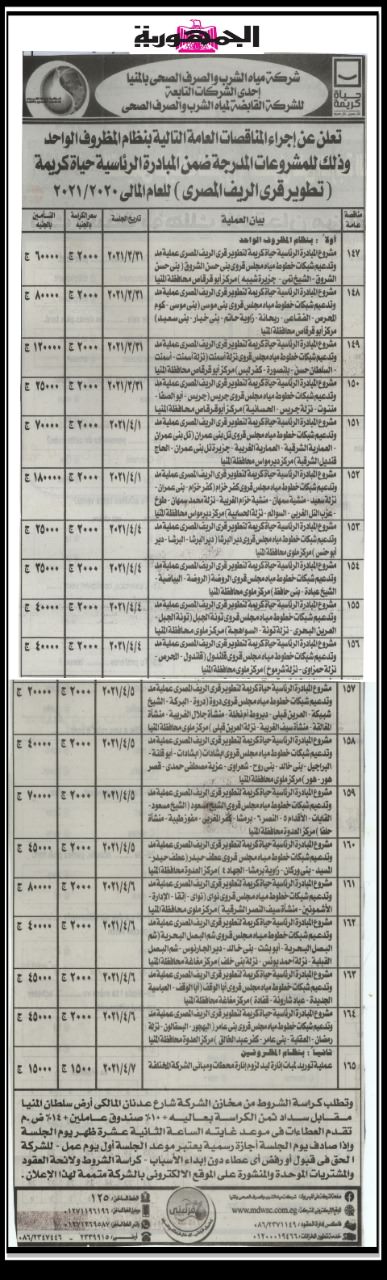 الجمهورية
شركة مياه الشرب والصرف الصحى بالمنيا
إحدى الشركات التابعة
للشركة القابضة لمياه الشرب والصرف الصحى
حياة كريمة
تعلن عن إجراء المناقصات العامة التالية بنظام المظروف الواحد
وذلك للمشروعات المدرجة ضمن المبادرة الرئاسية حياة كريمة
( تطوير قرى الريف المصرى ) للعام المالى ٢٠٢١/٢٠٢٠
مناقصة عامة بيان العملية تاريخ الجلسة سعر الكراسة بالجنيه التأمين بالجنيه
أولاً : بنظام المظروف الواحد
١٤٧ مشروع المبادرة الرئاسية حياة كريمة لتطوير قرى الريف المصرى عملية مد ٢٠٢١/٣/٣١ ٢٠٠٠ ج ٦٠٠٠٠ ج
وتدعيم شبكات خطوط مياه مجلس قروى بنى حسن الشروق ( بنى حسن
الشروق - الشيخ تمى - جزيرة شيبه ) مركز أبو قرقاص محافظة المنيا
١٤٨ مشروع المبادرة الرئاسية حياة كريمة لتطوير قرى الريف المصرى عملية مد ٢٠٢١/٣/٣١ ٢٠٠٠ ج ٨٠٠٠٠ ج
وتدعيم شبكات خطوط مياه مجلس قروى بنى موسى ( بنى موسى - كوم
المحرص - الفقاعى - ريحانة - زاوية حاتم - بنى خيار - بنى سعيد )
مركز أبو قرقاص محافظة المنيا
١٤٩ مشروع المبادرة الرئاسية حياة كريمة لتطوير قرى الريف المصرى عملية مد ٢٠٢١/٣/٣١ ٢٠٠٠ ج ١٢٠٠٠٠ ج
وتدعيم شبكات خطوط مياه مجلس قروى نزلة أسمنت ( نزلة أسمنت - أسمنت
- السلطان حسن - منصورة - كفر لبس ) مركز أبو قرقاص محافظة المنيا
١٥٠ مشروع المبادرة الرئاسية حياة كريمة لتطوير قرى الريف المصرى عملية مد ٢٠٢١/٣/٣١ ٢٠٠٠ ج ٢٥٠٠٠ ج
وتدعيم شبكات خطوط مياه مجلس قروى جريس ( جريس - أبو الصفا -
منتوت - نزلة جريس - الحسانية ) مركز أبو قرقاص محافظة المنيا
١٥١ مشروع المبادرة الرئاسية حياة كريمة لتطوير قرى الريف المصرى عملية مد ٢٠٢١/٤/١ ٢٠٠٠ ج ٧٠٠٠٠ ج
وتدعيم شبكات خطوط مياه مجلس قروى تل بنى عمران ( تل بنى عمران
- العمارية الشرقية - العمارية الغربية - جزيرة تل بنى عمران - الحاج
قنديل الشرقية ) مركز ديرمواس محافظة المنيا
١٥٢ مشروع المبادرة الرئاسية حياة كريمة لتطوير قرى الريف المصرى عملية مد ٢٠٢١/٤/١ ٢٠٠٠ ج ١٨٠٠٠٠ ج
وتدعيم شبكات خطوط مياه مجلس قروى كفر خزام ( كفر خزام - بنى عمران -
نزلة سعيد - منشية سمهان - منشية خزام الغربية - نزلة محمد بيمهان - طوخ
- عزب التل الغربى - السوالم - نزلة الحسابية ) مركز ديرمواس محافظة المنيا
١٥٣ مشروع المبادرة الرئاسية حياة كريمة لتطوير قرى الريف المصرى عملية مد ٢٠٢١/٤/٤ ٢٠٠٠ ج ٢٥٠٠٠ ج
وتدعيم شبكات خطوط مياه مجلس قروى دير البرشا ( دير البرشا - البرشا - دير
أبو حنس ) مركز ملوى محافظة المنيا
١٥٤ مشروع المبادرة الرئاسية حياة كريمة لتطوير قرى الريف المصرى عملية مد ٢٠٢١/٤/٤ ٢٠٠٠ ج ٣٥٠٠٠ ج
وتدعيم شبكات خطوط مياه مجلس قروى الروضة ( الروضة - البياضية -
الشيخ عبادة - بنى حافظ ) مركز ملوى محافظة المنيا
١٥٥ مشروع المبادرة الرئاسية حياة كريمة لتطوير قرى الريف المصرى عملية مد ٢٠٢١/٤/٤ ٢٠٠٠ ج ٤٠٠٠٠ ج
وتدعيم شبكات خطوط مياه مجلس قروى تونة الجبل ( تونة الجبل -
العرين البحرى - نزلة تونة - السواهجة ) مركز ملوى محافظة المنيا
١٥٦ مشروع المبادرة الرئاسية حياة كريمة لتطوير قرى الريف المصرى عملية مد ٢٠٢١/٤/٤ ٢٠٠٠ ج ٤٠٠٠٠ ج
وتدعيم شبكات خطوط مياه مجلس قروى قلندول ( قلندول - المحرص -
نزلة حمزاوى - نزلة شرموخ ) مركز ملوى محافظة المنيا
١٥٧ مشروع المبادرة الرئاسية حياة كريمة لتطوير قرى الريف المصرى عملية مد ٢٠٢١/٤/٥ ٢٠٠٠ ج ٢٠٠٠٠ ج
وتدعيم شبكات خطوط مياه مجلس قروى دروة ( دروة - البركة - الشيخ
شبيكة - العرين قبلى - ديروط أم نخلة - منشأة جلال الغربية - منشأة
المغالقة - منشأة سيف الغربية - نزلة العرين قبلى ) مركز ملوى محافظة المنيا
١٥٨ مشروع المبادرة الرئاسية حياة كريمة لتطوير قرى الريف المصرى عملية مد ٢٠٢١/٤/٥ ٢٠٠٠ ج ٤٠٠٠٠ ج
وتدعيم شبكات خطوط مياه مجلس قروى اتشادات ( ابشادات - أبو قلتة -
البراجيل - بنى خالد - بنى روح - شعراوى - عزبة مصطفى حمدى - قصر
هور - هور ) مركز ملوى محافظة المنيا
١٥٩ مشروع المبادرة الرئاسية حياة كريمة لتطوير قرى الريف المصرى عملية مد ٢٠٢١/٤/٥ ٢٠٠٠ ج ٧٠٠٠٠ ج
وتدعيم شبكات خطوط مياه مجلس قروى الشيخ مسعود ( الشيخ مسعود -
القايات - الأقدام ٥ - النصر ٦ - برمشا - كفر المغربى - صفو طيبة - منشأة
حلفا ) مركز العدوة محافظة المنيا
١٦٠ مشروع المبادرة الرئاسية حياة كريمة لتطوير قرى الريف المصرى عملية مد ٢٠٢١/٤/٥ ٢٠٠٠ ج ٤٥٠٠٠ ج
وتدعيم شبكات خطوط مياه مجلس قروى عطف حيدر ( عطف حيدر -
المسيد - بنى وركان - زاوية برمشا - الجهاد ٤ ) مركز العدوة محافظة المنيا
١٦١ مشروع المبادرة الرئاسية حياة كريمة لتطوير قرى الريف المصرى عملية مد ٢٠٢١/٤/٦ ٢٠٠٠ ج ٨٠٠٠٠ ج
وتدعيم شبكات خطوط مياه مجلس قروى نواى ( نواى - إتقا - الإدارة -
الأشمونين - منشأة سيف النصر الشرقية ) مركز ملوى محافظة المنيا
١٦٢ مشروع المبادرة الرئاسية حياة كريمة لتطوير قرى الريف المصرى عملية مد ٢٠٢١/٤/٦ ٢٠٠٠ ج ٤٠٠٠٠ ج
وتدعيم شبكات خطوط مياه مجلس قروى شم البصل البحرية ( شم
البصل البحرية - أبو بشت - بنى خالد - دير الجارنوس - شم البصل
القبلية - نزلة أحمد يونس - نزلة بنى خلف ) مركز مغاغة محافظة المنيا
١٦٣ مشروع المبادرة الرئاسية حياة كريمة لتطوير قرى الريف المصرى عملية مد ٢٠٢١/٤/٦ ٢٠٠٠ ج ٤٥٠٠٠ ج
وتدعيم شبكات خطوط مياه مجلس قروى أبا الوقف ( أبا الوقف - العباسية
الجديدة - عباد شارونة - قفادة ) مركز مغاغة محافظة المنيا
١٦٤ مشروع المبادرة الرئاسية حياة كريمة لتطوير قرى الريف المصرى عملية مد ٢٠٢١/٤/٦ ٢٠٠٠ ج ٤٥٠٠٠ ج
وتدعيم شبكات خطوط مياه مجلس قروى بنى عامر ( البهجور - البستالون - نزلة
رمضان - العقلية - بنى عامر - كفر عبد الخالق ) مركز العدوة محافظة المنيا
ثانيا : بنظام المظروفين
١٦٥ عملية توريد لمبات إنارة ليد لزوم إنارة محطات ومبانى الشركة المختلفة ٢٠٢١/٤/٧ ١٥٠٠ ج ١٥٠٠٠ ج
وتطلب كراسة الشروط من مخازن الشركة شارع عدنان المالكى أرض سلطان المنيا
مقابل سداد ثمن الكراسة بعاليه + ١٠٪ صندوق عاملين + ١٤٪ ض.م
تقدم العطاءات فى موعد غايته الساعة الثانية عشرة ظهر يوم الجلسة
وإذا صادف يوم الجلسة أجازة رسمية يعتبر موعد الجلسة أول يوم عمل - للشركة
الحق فى قبول أو رفض أى عطاء دون إبداء الأسباب - كراسة الشروط ولائحة العقود
والمشتريات الموحدة والمنشورة على موقع الالكترونى بالشركة متممة لهذا الإعلان .
www.mdwsc.com.eg
١٢٥